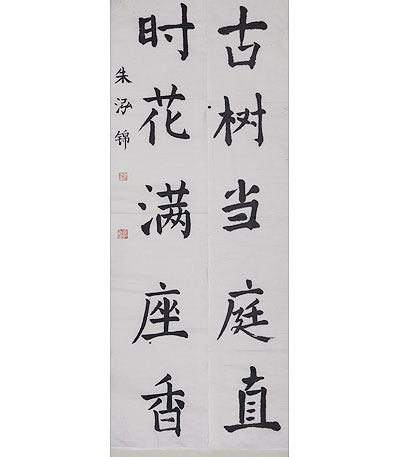 古树当庭直
时花满座香
朱锦